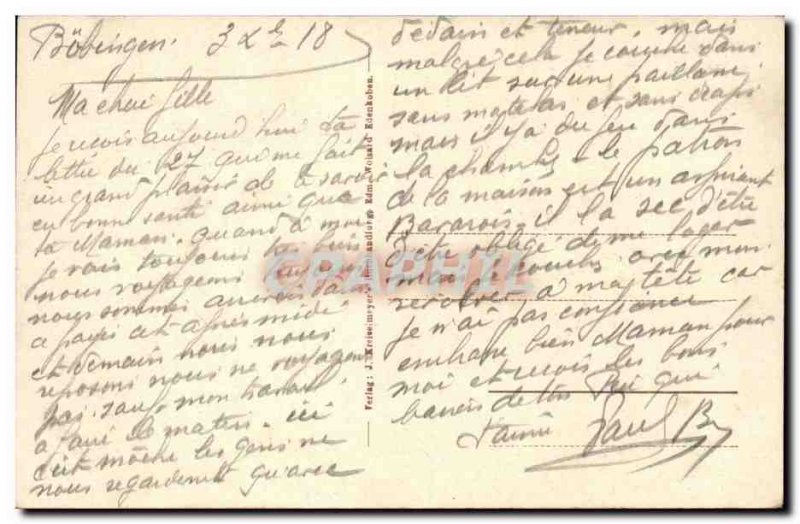 Böbingen. 3 Xbre 18
Ma chere fille
je recois aujourd hui ta
lettre du 27 qui me fait
un grand plaisir de te savoir
en bonne santé ainsi que
ta Maman. quand à moi
je vais toujours tres bien
nous voyageons toujours
nous sommes
a pays cet après midi.
et demain nous nous
reposons nous ne voyageons
pas. sauf mon travail
a faire le matin. ici
c'est moche les gens ne
nous regardent qu'avec
Verlag: J. Kreiselmeyer's Buchhandlung, Edm. Wolsard Edenkoben.
CPRAPHIL
dedain et terreur. mais
malgré cela je couche dans
un lit sur une paillasse
sans matelas et sans draps
mais il y a du feu dans
la chambre. le patron
de la maison est un
Bavarois. il l'a sec d'être
d'être obligé de me loger
mais je couche avec mon
revolver à ma tête car
je n'ai pas confiance
embrasse bien Maman pour
moi et recois les bons
baisers de ton Pere qui
t'aime Paul B